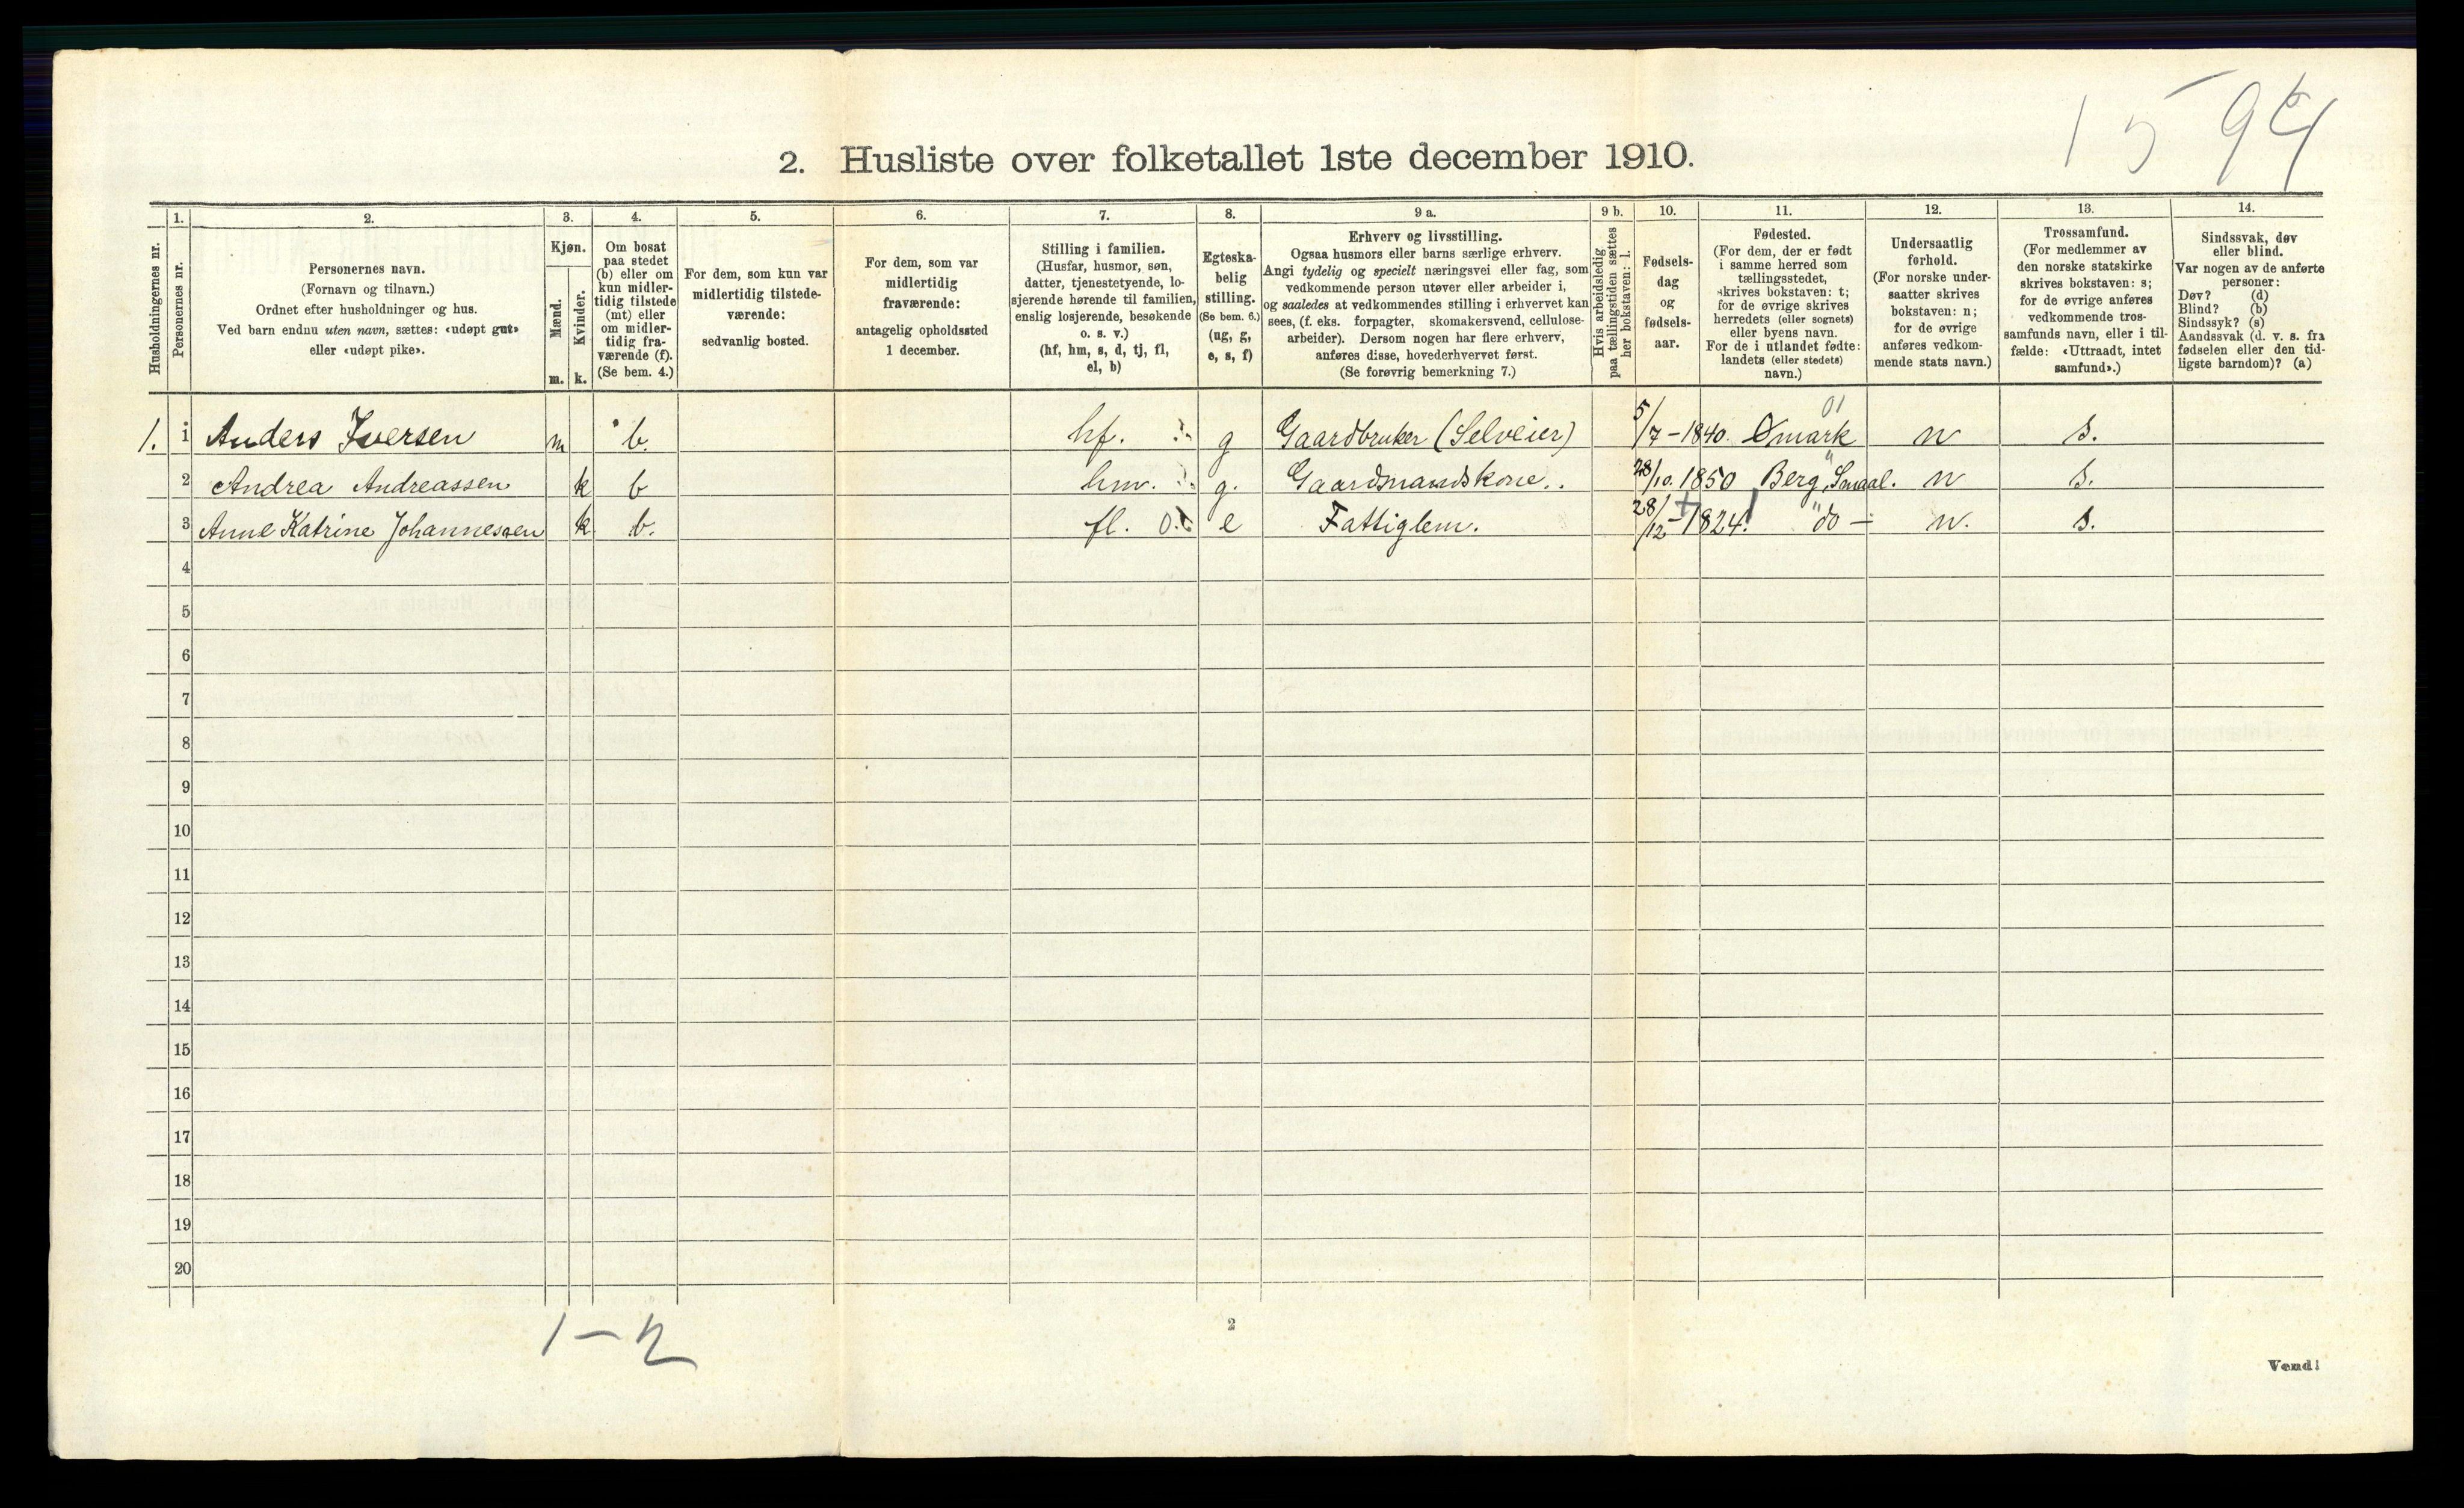 1594
2. Husliste over folketallet 1ste december 1910.
Husholdningernes nr.
1. Personernes nr.
2. Personernes navn. (Fornavn og tilnavn.) Ordnet efter husholdninger og hus. Ved barn endnu uten navn, sættes: «udøpt gut» eller «udøpt pike».
3. Kjøn. Mænd. m. Kvinder. k.
4. Om bosat paa stedet (b) eller om kun midlertidig tilstede (mt) eller om midlertidig fraværende (f). (Se bem. 4.)
5. For dem, som kun var midlertidig tilstedeværende: sedvanlig bosted.
6. For dem, som var midlertidig fraværende: antagelig opholdssted 1 december.
7. Stilling i familien. (Husfar, husmor, søn, datter, tjenestetyende, losjerende hørende til familien, enslig losjerende, besøkende o. s. v.) (hf, hm, s, d, tj, fl, el, b)
8. Egteskabelig stilling. (Se bem. 6.) (ug, g, e, s, f)
9 a. Erhverv og livsstilling. Ogsaa husmors eller barns særlige erhverv. Angi tydelig og specielt næringsvei eller fag, som vedkommende person utøver eller arbeider i, og saaledes at vedkommendes stilling i erhvervet kan sees, (f. eks. forpagter, skomakersvend, cellulosearbeider). Dersom nogen har flere erhverv, anføres disse, hovederhvervet først. (Se forøvrig bemerkning 7.)
9 b. Hvis arbeidsledig paa tællingstiden sættes her bokstaven: l.
10. Fødselsdag og fødselsaar.
11. Fødested. (For dem, der er født i samme herred som tællingsstedet, skrives bokstaven: t; for de øvrige skrives herredets (eller sognets) eller byens navn. For de i utlandet fødte: landets (eller stedets) navn.)
12. Undersaatlig forhold. (For norske undersaatter skrives bokstaven: n; for de øvrige anføres vedkommende stats navn.)
13. Trossamfund. (For medlemmer av den norske statskirke skrives bokstaven: s; for de øvrige anføres vedkommende trossamfunds navn, eller i tilfælde: «Uttraadt, intet samfund».)
14. Sindssvak, døv eller blind. Var nogen av de anførte personer: Døv? (d) Blind? (b) Sindssyk? (s) Aandssvak (d. v. s. fra fødselen eller den tidligste barndom)? (a)
1. 1 Anders Iversen m b. hf. g Gaardbruker (Selveier) 5/7-1840. Ømark 01 n s.
2 Andrea Andreassen k b hm. g. Gaardsmandskone. 28/10. 1850 Berg, Smaal. n s.
3 Anne Katrine Johannessen k b. fl. e Fattiglem. 28/12-1824. do — n. s.
4
5
6
7
8
9
10
11
12
13
14
15
16
17
18
19
20
1-2
2
Vend!